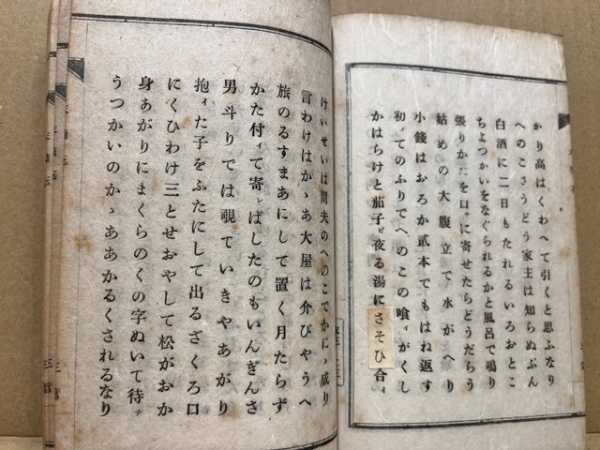 かり高はくわへて引くと思ふなり
へのこさうどう家主は知らぬぶん
白酒に二日もたれるいろおとこ
ちよつかいをなぐられるかと風呂で鳴り
張りかたを口ィに寄せたらどうだらう
姑めの大腹立で水がへり
小銭はおろか貮本でもはね返す
初ィてのふりでへのこの喰ィがくし
かはらけと茄子ど夜る湯にさそひ合ィ
けいせいは間夫のへのこでかにゝ成り
言わけはかゝあ大屋は介びやうへ
旅のるすまあにして置く月たらず
かた付ィて寄ればしたのもいんぎんさ
男斗りでは覗ていきやあがり
抱ィた子をふたにして出るざくろ口
にくひわけ三とせおやして松がおか
身あがりにまくらのくの字ぬいて待ィ
うつかいのかゝああかるくされるなり